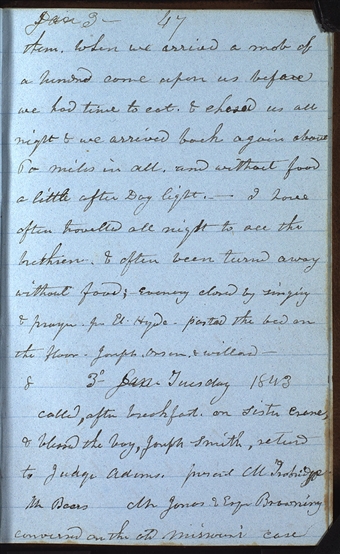 Jan 3- 47
them. When we arrived a mob of
a hundred come upon us before
we had time to eat. & chased us all
night & we arrived back again about
60 miles in all. and without food
a little after Day light.— I have
often travelled all night to see the
brethren. & often been turned away
without food; evening closed by singing
& prayer. per El. Hyde. parted the bed on
the floor. Joseph. Orson. & willard—
& 3d Jan. Tuesday 1843
called, after breakfast. on Sister Crane,
& blessed the boy, Joseph Smith, return
to Judge Adams. present M.
Mr Bears Mr Jonas & Esqr Browning
conversed on the old missouri case